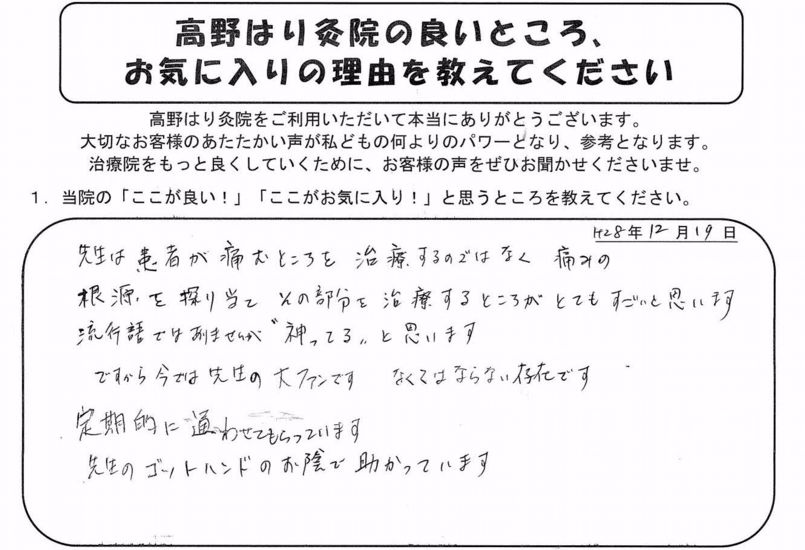 高野はり灸院の良いところ、
お気に入りの理由を教えてください
高野はり灸院をご利用いただいて本当にありがとうございます。
大切なお客様のあたたかい声が私どもの何よりのパワーとなり、参考となります。
治療院をもっと良くしていくために、お客様の声をぜひお聞かせくださいませ。
1．当院の「ここが良い！」「ここがお気に入り！」と思うところを教えてください。
H28年12月19日
先生は患者が痛むところを 治療するのではなく 痛みの
根源を探り当て その部分を治療するところが とてもすごいと思います
流行語ではありませんが〝神ってる〟と思います
ですから今では先生の大ファンです なくてはならない存在です
定期的に通わせてもらっています
先生のゴットハンドのお陰で助かっています